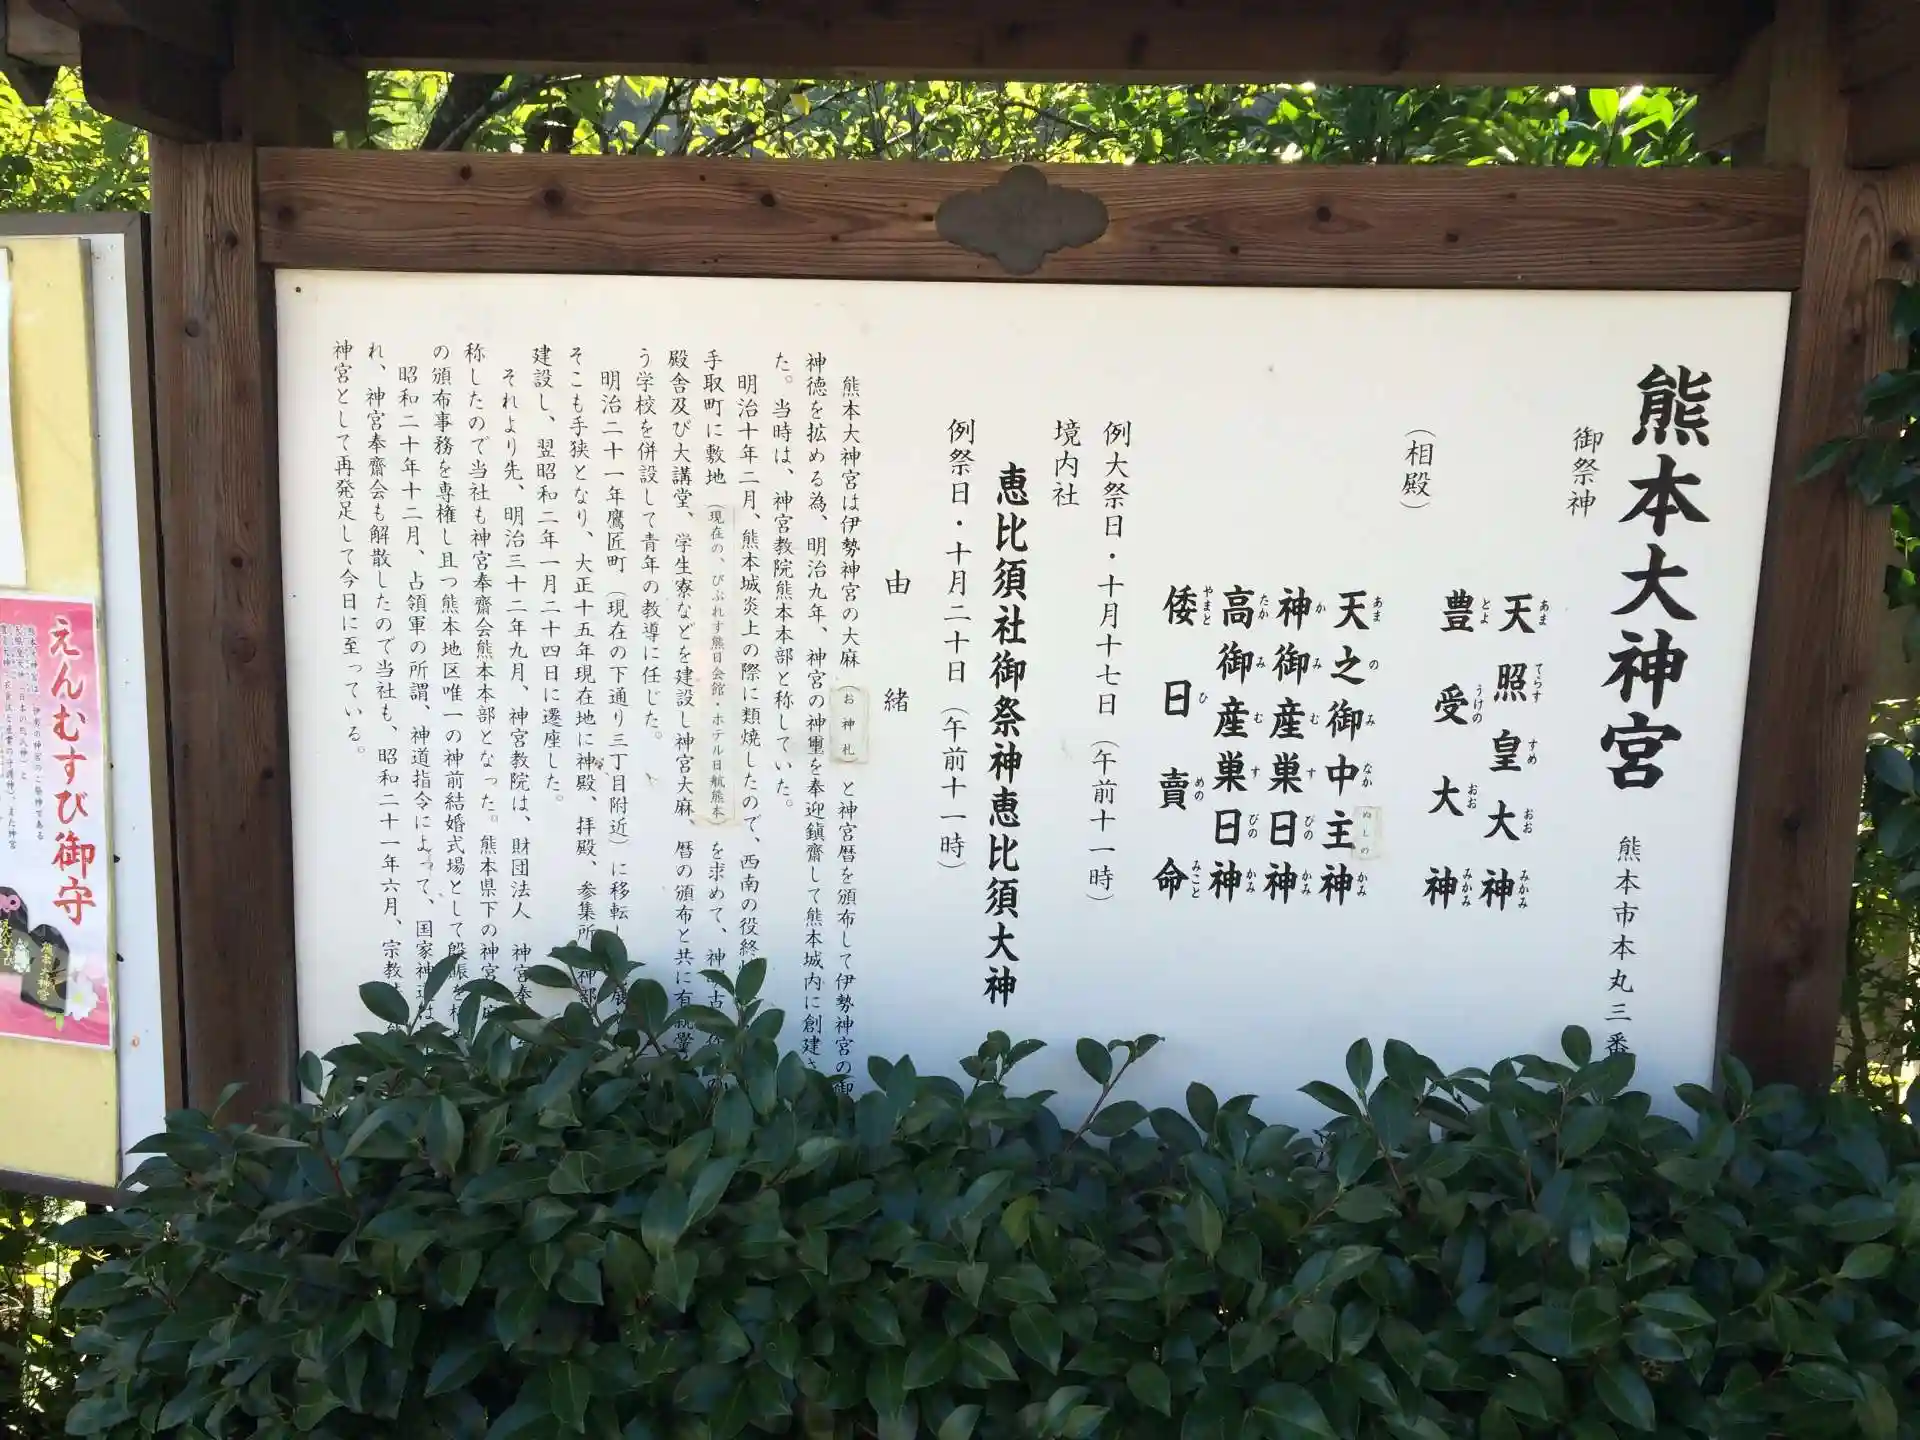 熊本大神宮 熊本市本丸三番
御祭神
天照皇大神
あま てらす すめ おお みかみ
豊受大神
とよ うけの おお みかみ
(相殿)
天之御中主神
あま の み なか ぬしの かみ
神御産巣日神
か み む す びの かみ
高御産巣日神
たか み む す びの かみ
倭日賣命
やまと ひ めの みこと
例大祭日・十月十七日(午前十一時)
境内社
恵比須社御祭神恵比須大神
例祭日・十月二十日(午前十一時)
由緒
熊本大神宮は伊勢神宮の大麻(お神札)と神宮暦を頒布して伊勢神宮の御
神徳を拡める為、明治九年、神宮の神璽を奉迎鎮齋して熊本城内に創建さ
た。当時は、神宮教院熊本本部と称していた。
明治十年二月、熊本城炎上の際に類焼したので、西南の役終
手取町に敷地(現在の、びぷれす熊日会館・ホテル日航熊本)を求めて、神
殿舎及び大講堂、学生寮などを建設し神宮大麻、暦の頒布と共に有
う学校を併設して青年の教導に任じた。
明治二十一年鷹匠町(現在の下通り三丁目附近)に移転し
そこも手狭となり、大正十五年現在地に神殿、拝殿、参集所
建設し、翌昭和二年一月二十四日に遷座した。
それより先、明治三十二年九月、神宮教院は、財団法人 神宮奉
称したので当社も神宮奉齋会熊本本部となった。熊本県下の神宮
の頒布事務を専権し且つ熊本地区唯一の神前結婚式場として殷賑を
昭和二十年十二月、占領軍の所謂、神道指令によって、国家神道は
れ、神宮奉齋会も解散したので当社も、昭和二十一年六月、宗教
神宮として再発足して今日に至っている。
えんむすび御守